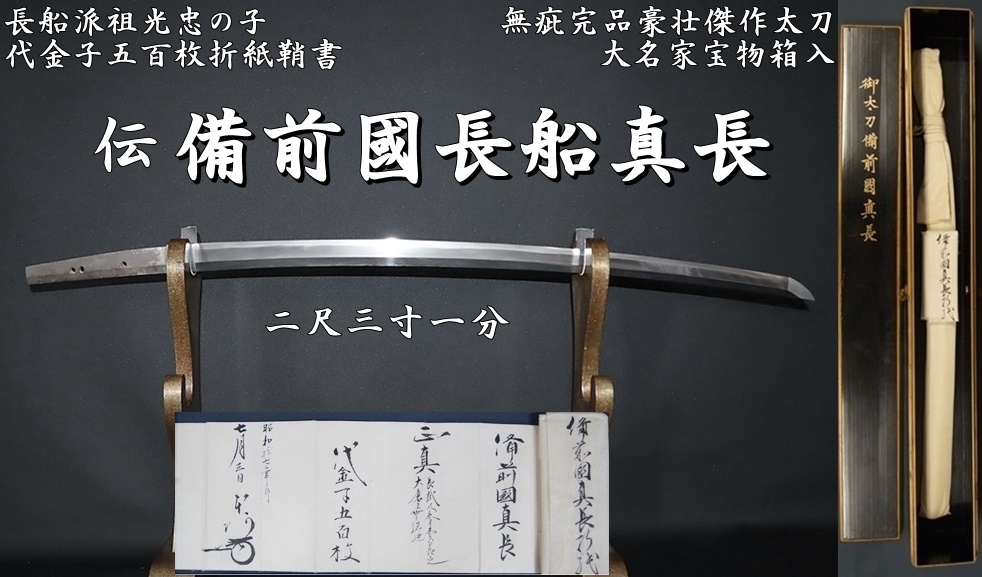 長船派祖光忠の子
代金子五百枚折紙鞘書
無疵完品豪壮傑作太刀
大名家宝物箱入
伝 備前國長船真長
二尺三寸一分
御太刀備前國真長
備前國真長折紙
備前國真長折紙
備前國真長
正真
代金子五百枚
七月三日